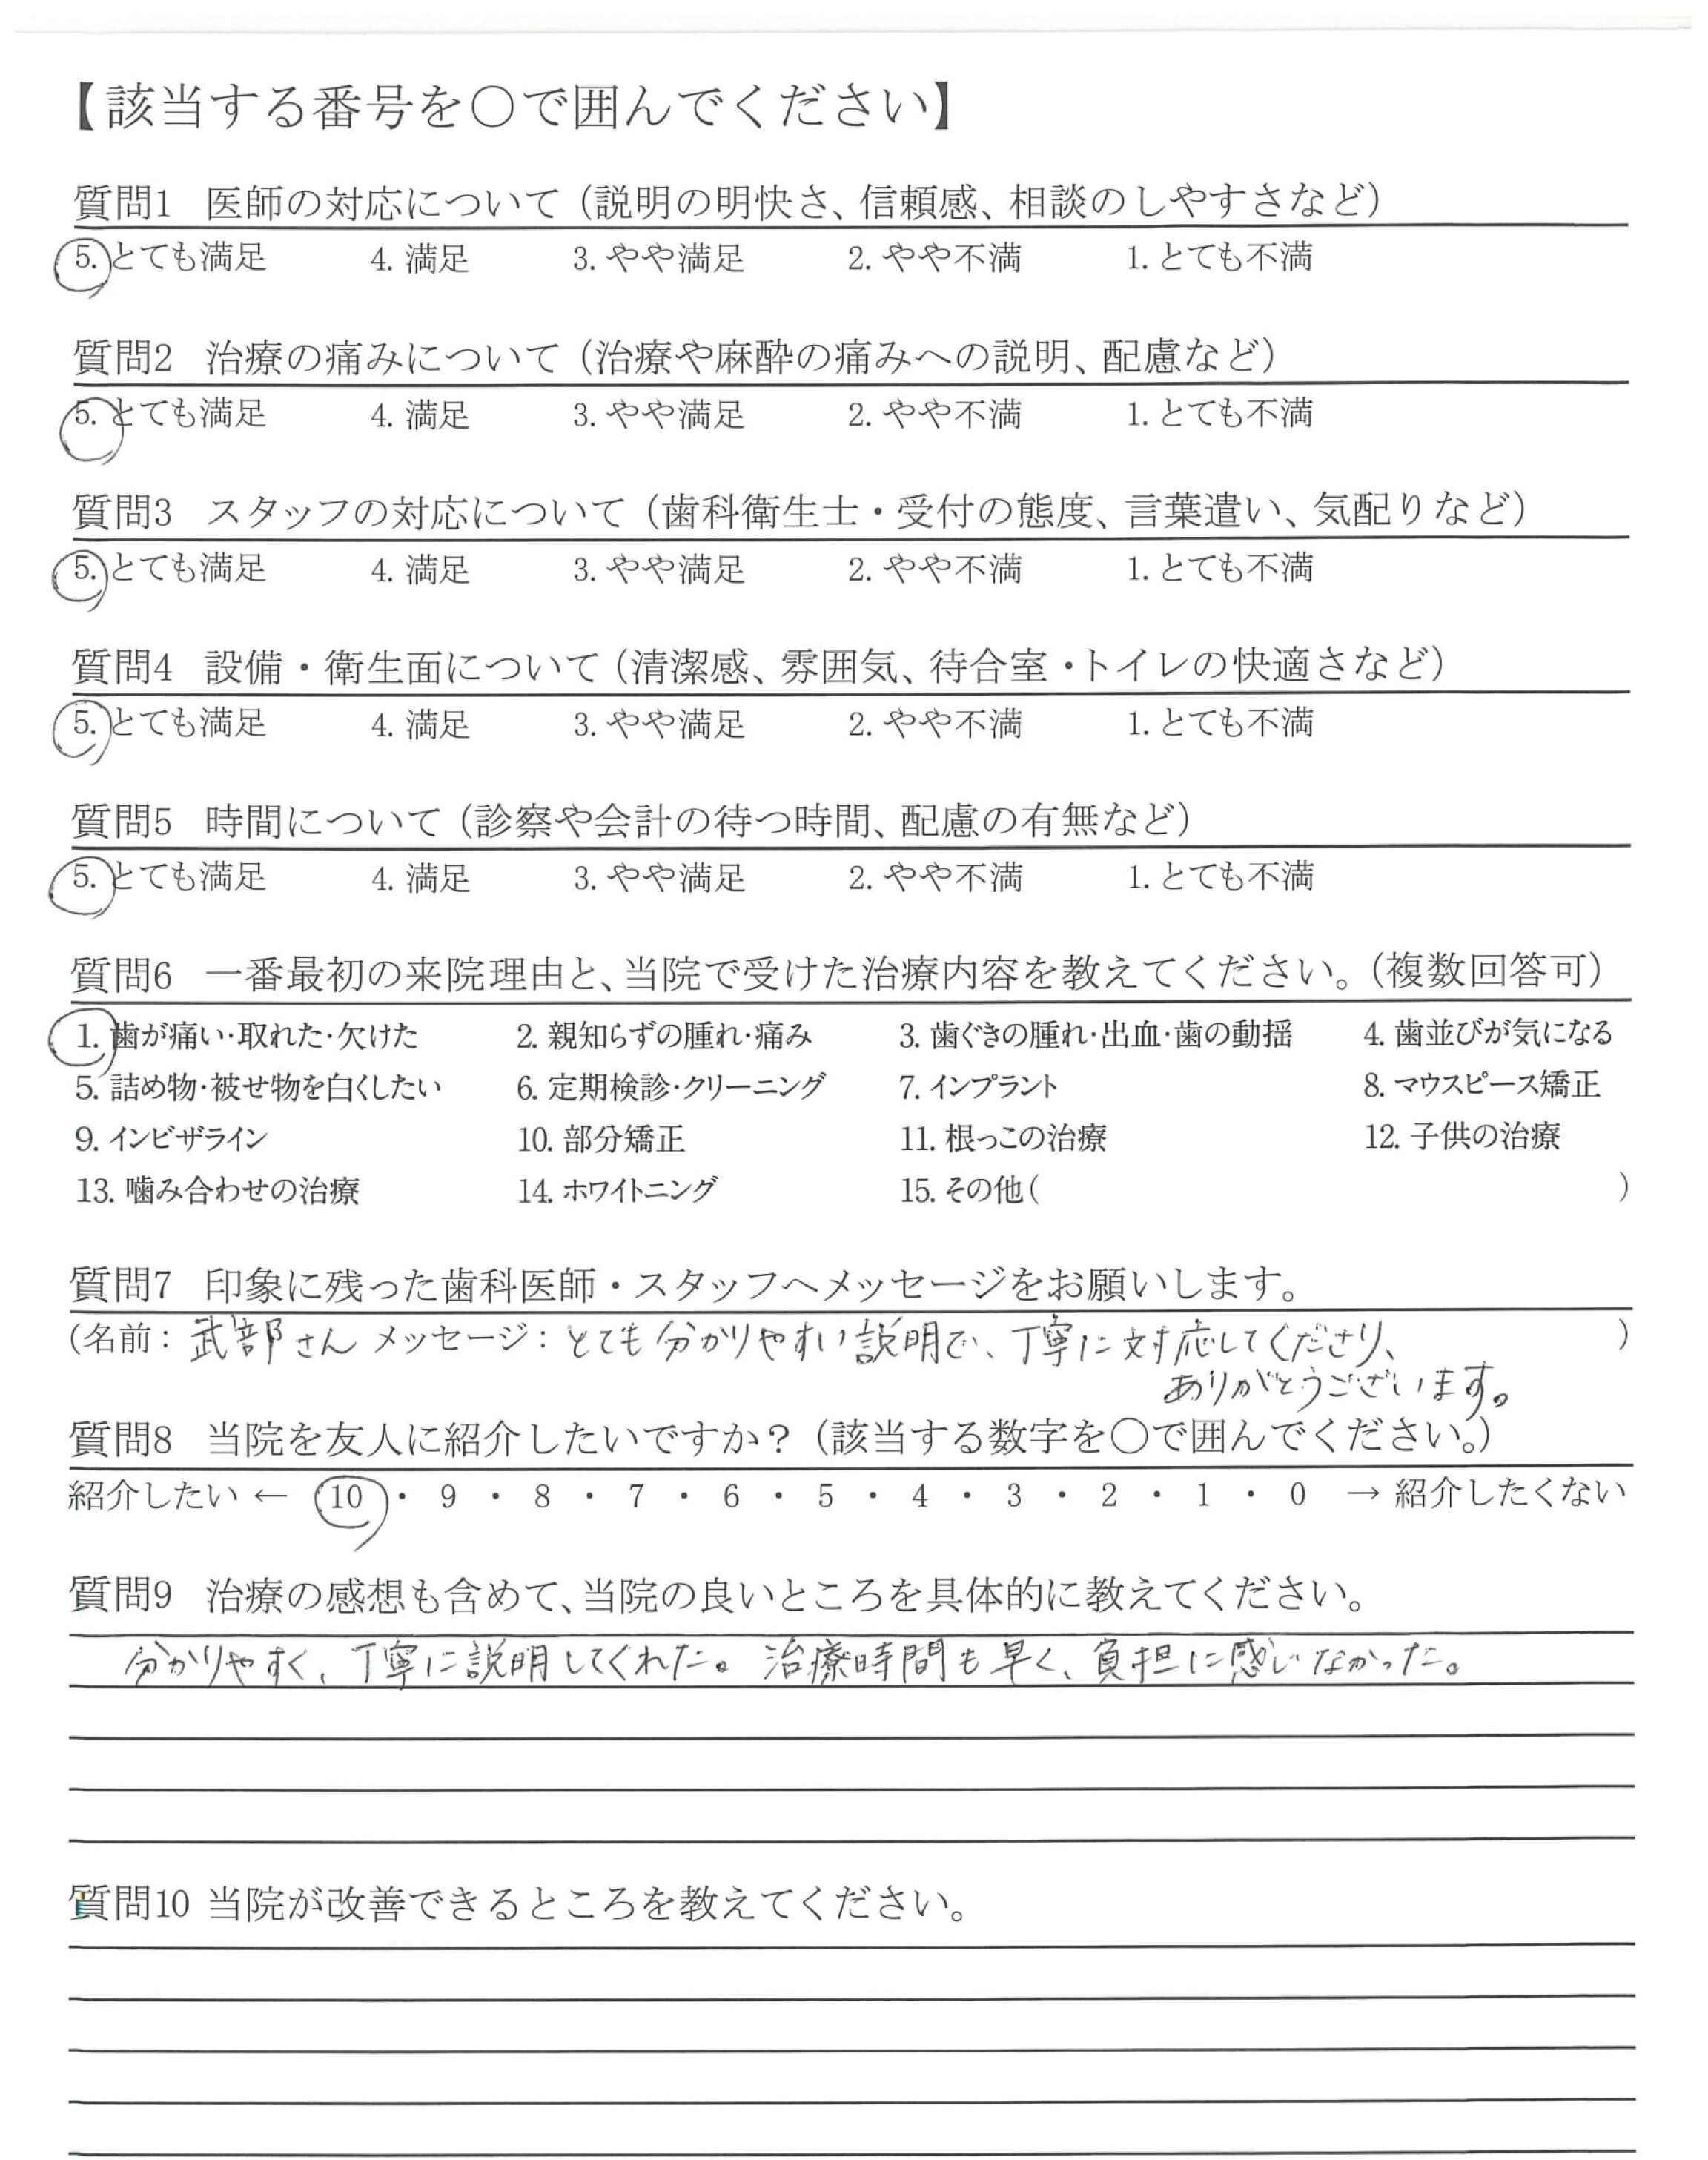 【該当する番号を○で囲んでください】
質問1 医師の対応について（説明の明快さ、信頼感、相談のしやすさなど）
5. とても満足 4. 満足 3. やや満足 2. やや不満 1. とても不満
質問2 治療の痛みについて（治療や麻酔の痛みへの説明、配慮など）
5. とても満足 4. 満足 3. やや満足 2. やや不満 1. とても不満
質問3 スタッフの対応について（歯科衛生士・受付の態度、言葉遣い、気配りなど）
5. とても満足 4. 満足 3. やや満足 2. やや不満 1. とても不満
質問4 設備・衛生面について（清潔感、雰囲気、待合室・トイレの快適さなど）
5. とても満足 4. 満足 3. やや満足 2. やや不満 1. とても不満
質問5 時間について（診察や会計の待つ時間、配慮の有無など）
5. とても満足 4. 満足 3. やや満足 2. やや不満 1. とても不満
質問6 一番最初の来院理由と、当院で受けた治療内容を教えてください。（複数回答可）
1. 歯が痛い・取れた・欠けた 2. 親知らずの腫れ・痛み 3. 歯ぐきの腫れ・出血・歯の動揺 4. 歯並びが気になる
5. 詰め物・被せ物を白くしたい 6. 定期検診・クリーニング 7. インプラント 8. マウスピース矯正
9. インビザライン 10. 部分矯正 11. 根っこの治療 12. 子供の治療
13. 噛み合わせの治療 14. ホワイトニング 15. その他（ ）
質問7 印象に残った歯科医師・スタッフへメッセージをお願いします。
（名前：武部さん メッセージ：とても分かりやすい説明で、丁寧に対応してくださり、 ）
ありがとうございます。
質問8 当院を友人に紹介したいですか？（該当する数字を○で囲んでください。）
紹介したい ← 10 ・ 9 ・ 8 ・ 7 ・ 6 ・ 5 ・ 4 ・ 3 ・ 2 ・ 1 ・ 0 → 紹介したくない
質問9 治療の感想も含めて、当院の良いところを具体的に教えてください。
分かりやすく、丁寧に説明してくれた。治療時間も早く、負担に感じなかった。
質問10 当院が改善できるところを教えてください。